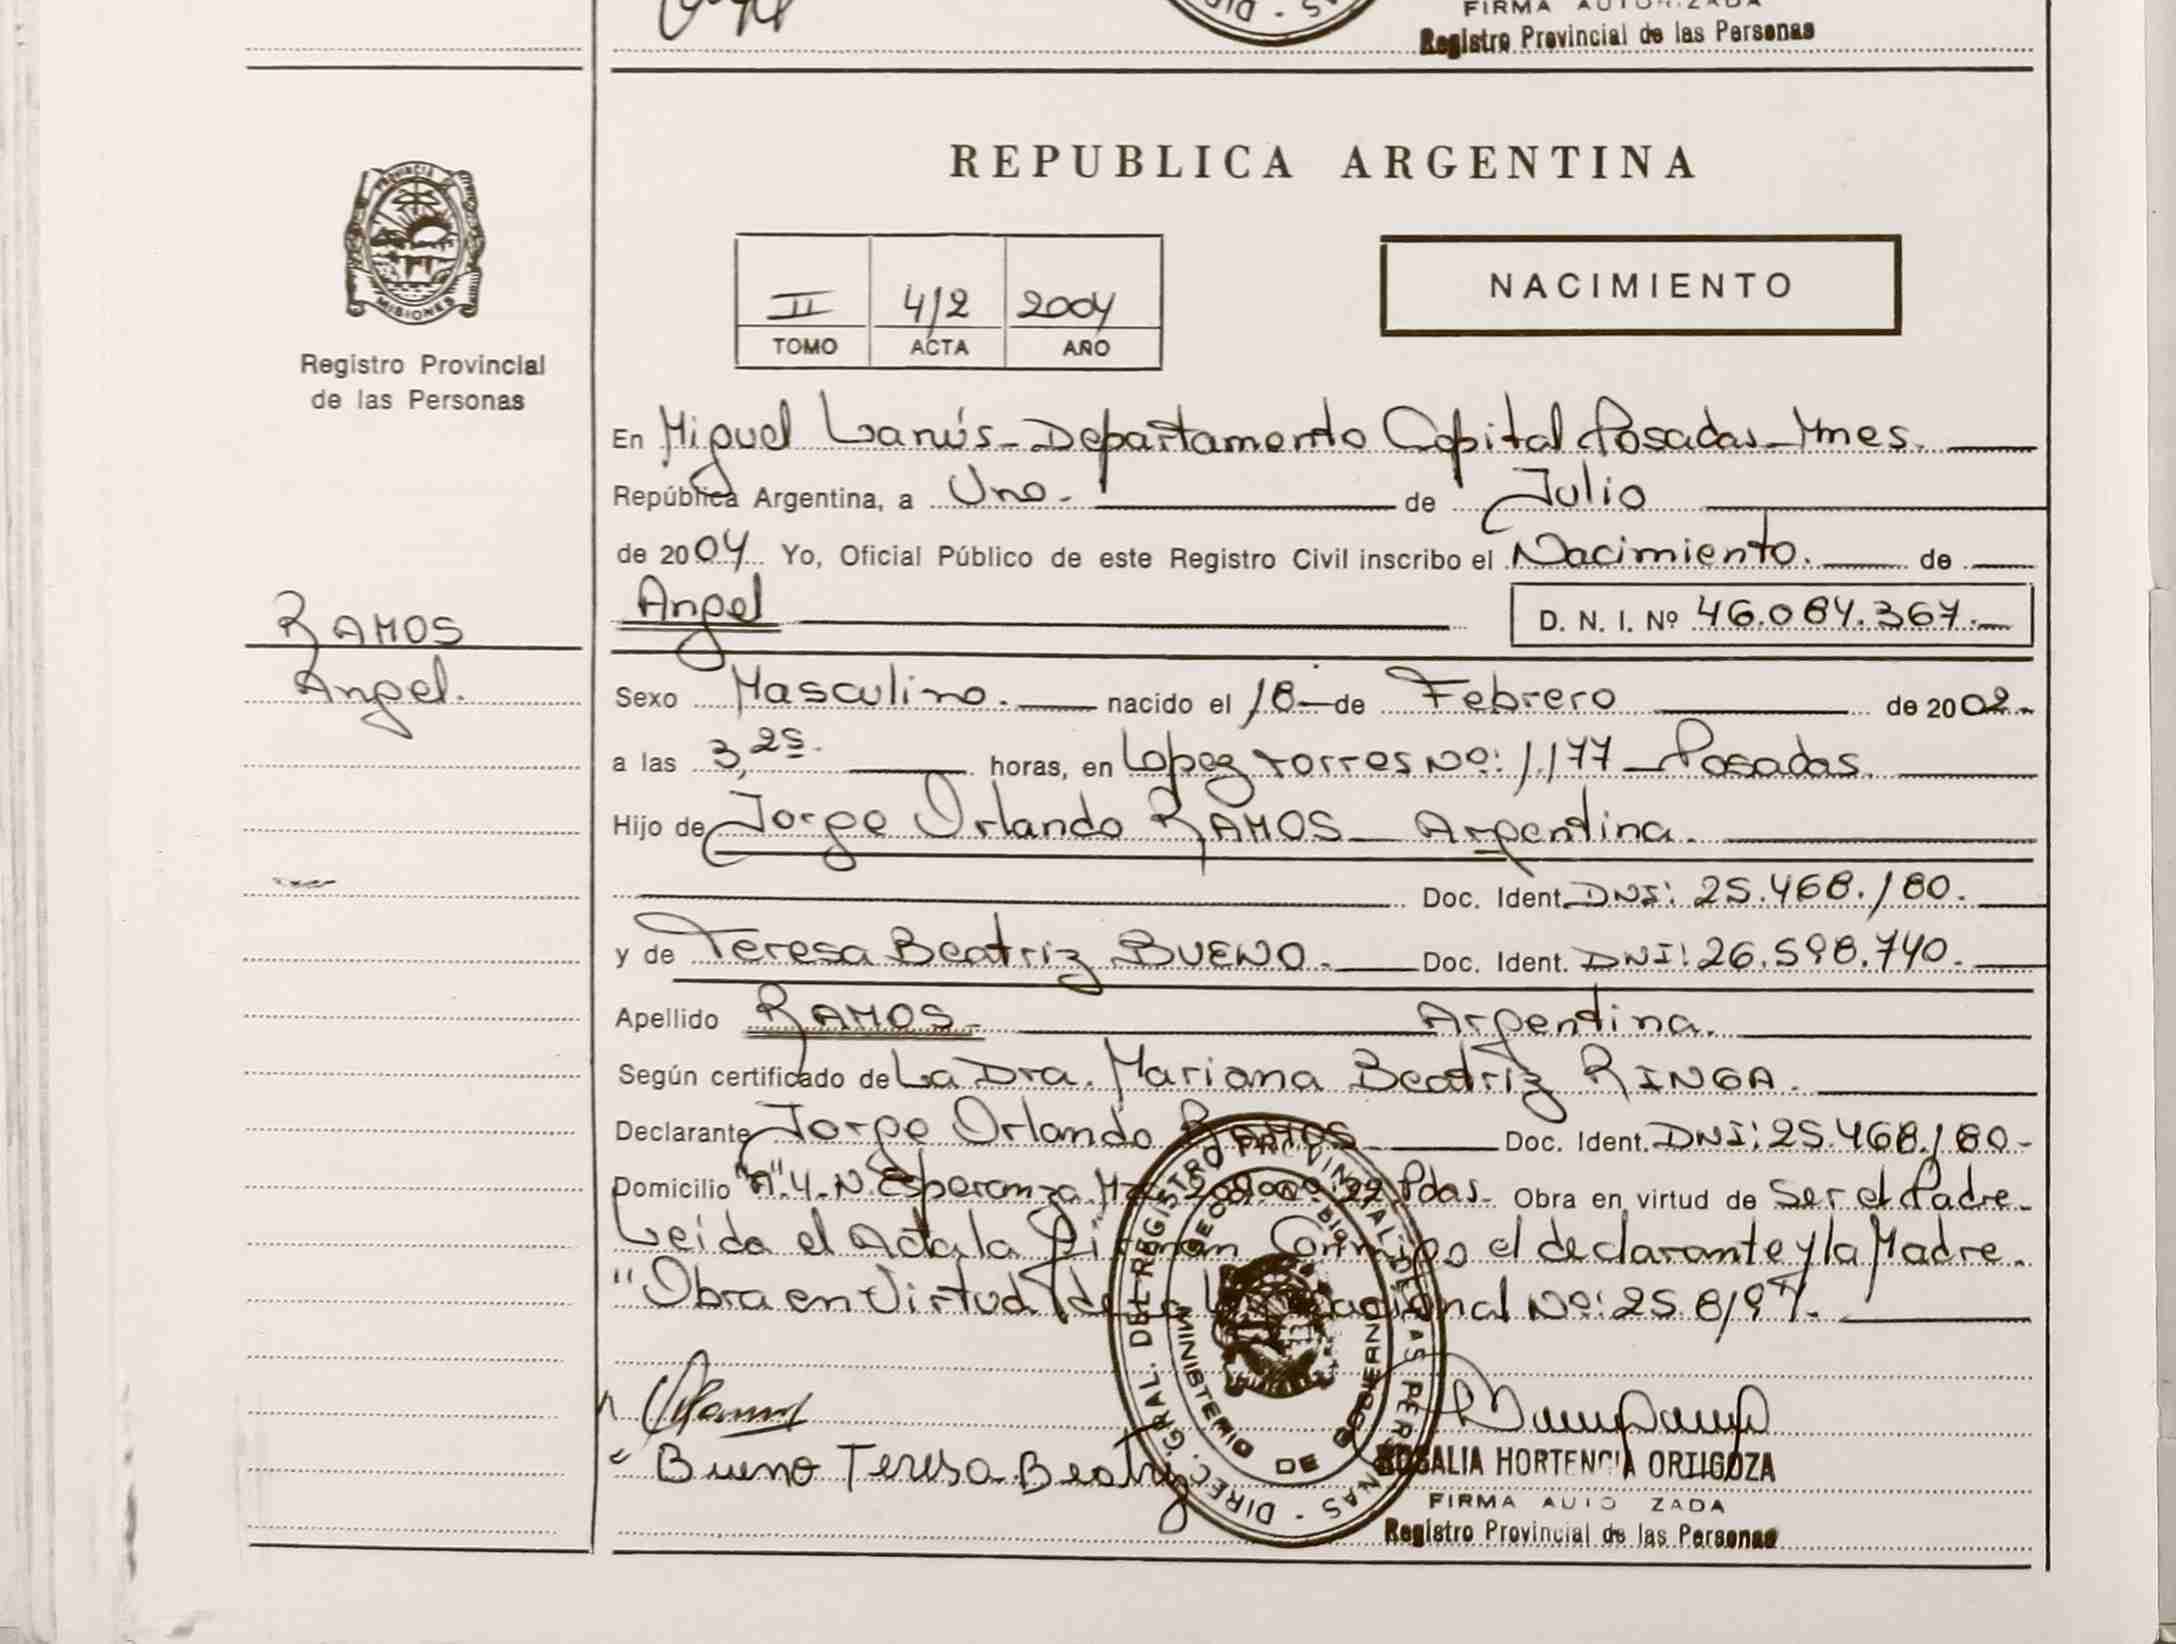 FIRMA AUTORIZADA
Registro Provincial de las Personas
PROVINCIA DE
MISIONES
Registro Provincial
de las Personas
REPUBLICA ARGENTINA
II 4/2 2004
TOMO ACTA AÑO
NACIMIENTO
En Miguel Lanús-Departamento Capital Posadas-Mnes.
República Argentina, a Uno.- de Julio
de 2004 Yo, Oficial Público de este Registro Civil inscribo el Nacimiento. de
Angel D. N. I. Nº 46.084.367.-
RAMOS
Angel.
Sexo Masculino. nacido el 18 de Febrero de 2002.-
a las 3,25. horas, en Lopez Torres Nº: 1.177 - Posadas.
Hijo de Jorge Orlando RAMOS - Argentina.
Doc. Ident. DNI: 25.468.180.
y de Teresa Beatriz BUENO. Doc. Ident. DNI: 26.598.740.
Apellido RAMOS. Argentina.
Según certificado de La Dra. Mariana Beatriz RINGA.
Declarante Jorge Orlando RAMOS Doc. Ident. DNI: 25.468.180-
Domicilio "A".4-N.Esperanza Pdas. Obra en virtud de Ser el Padre.
Leida el Acta la Firman Conmigo el declarante y la Madre.
"Obra en Virtud de la Ley Nacional Nº: 25.8/97.
DIREC. GRAL. DEL REGISTRO PROVINCIAL DE LAS PERSONAS
MINISTERIO DE GOBIERNO
Bueno Teresa Beatriz
ROSALIA HORTENCIA ORTIGOZA
FIRMA AUTORIZADA
Registro Provincial de las Personas